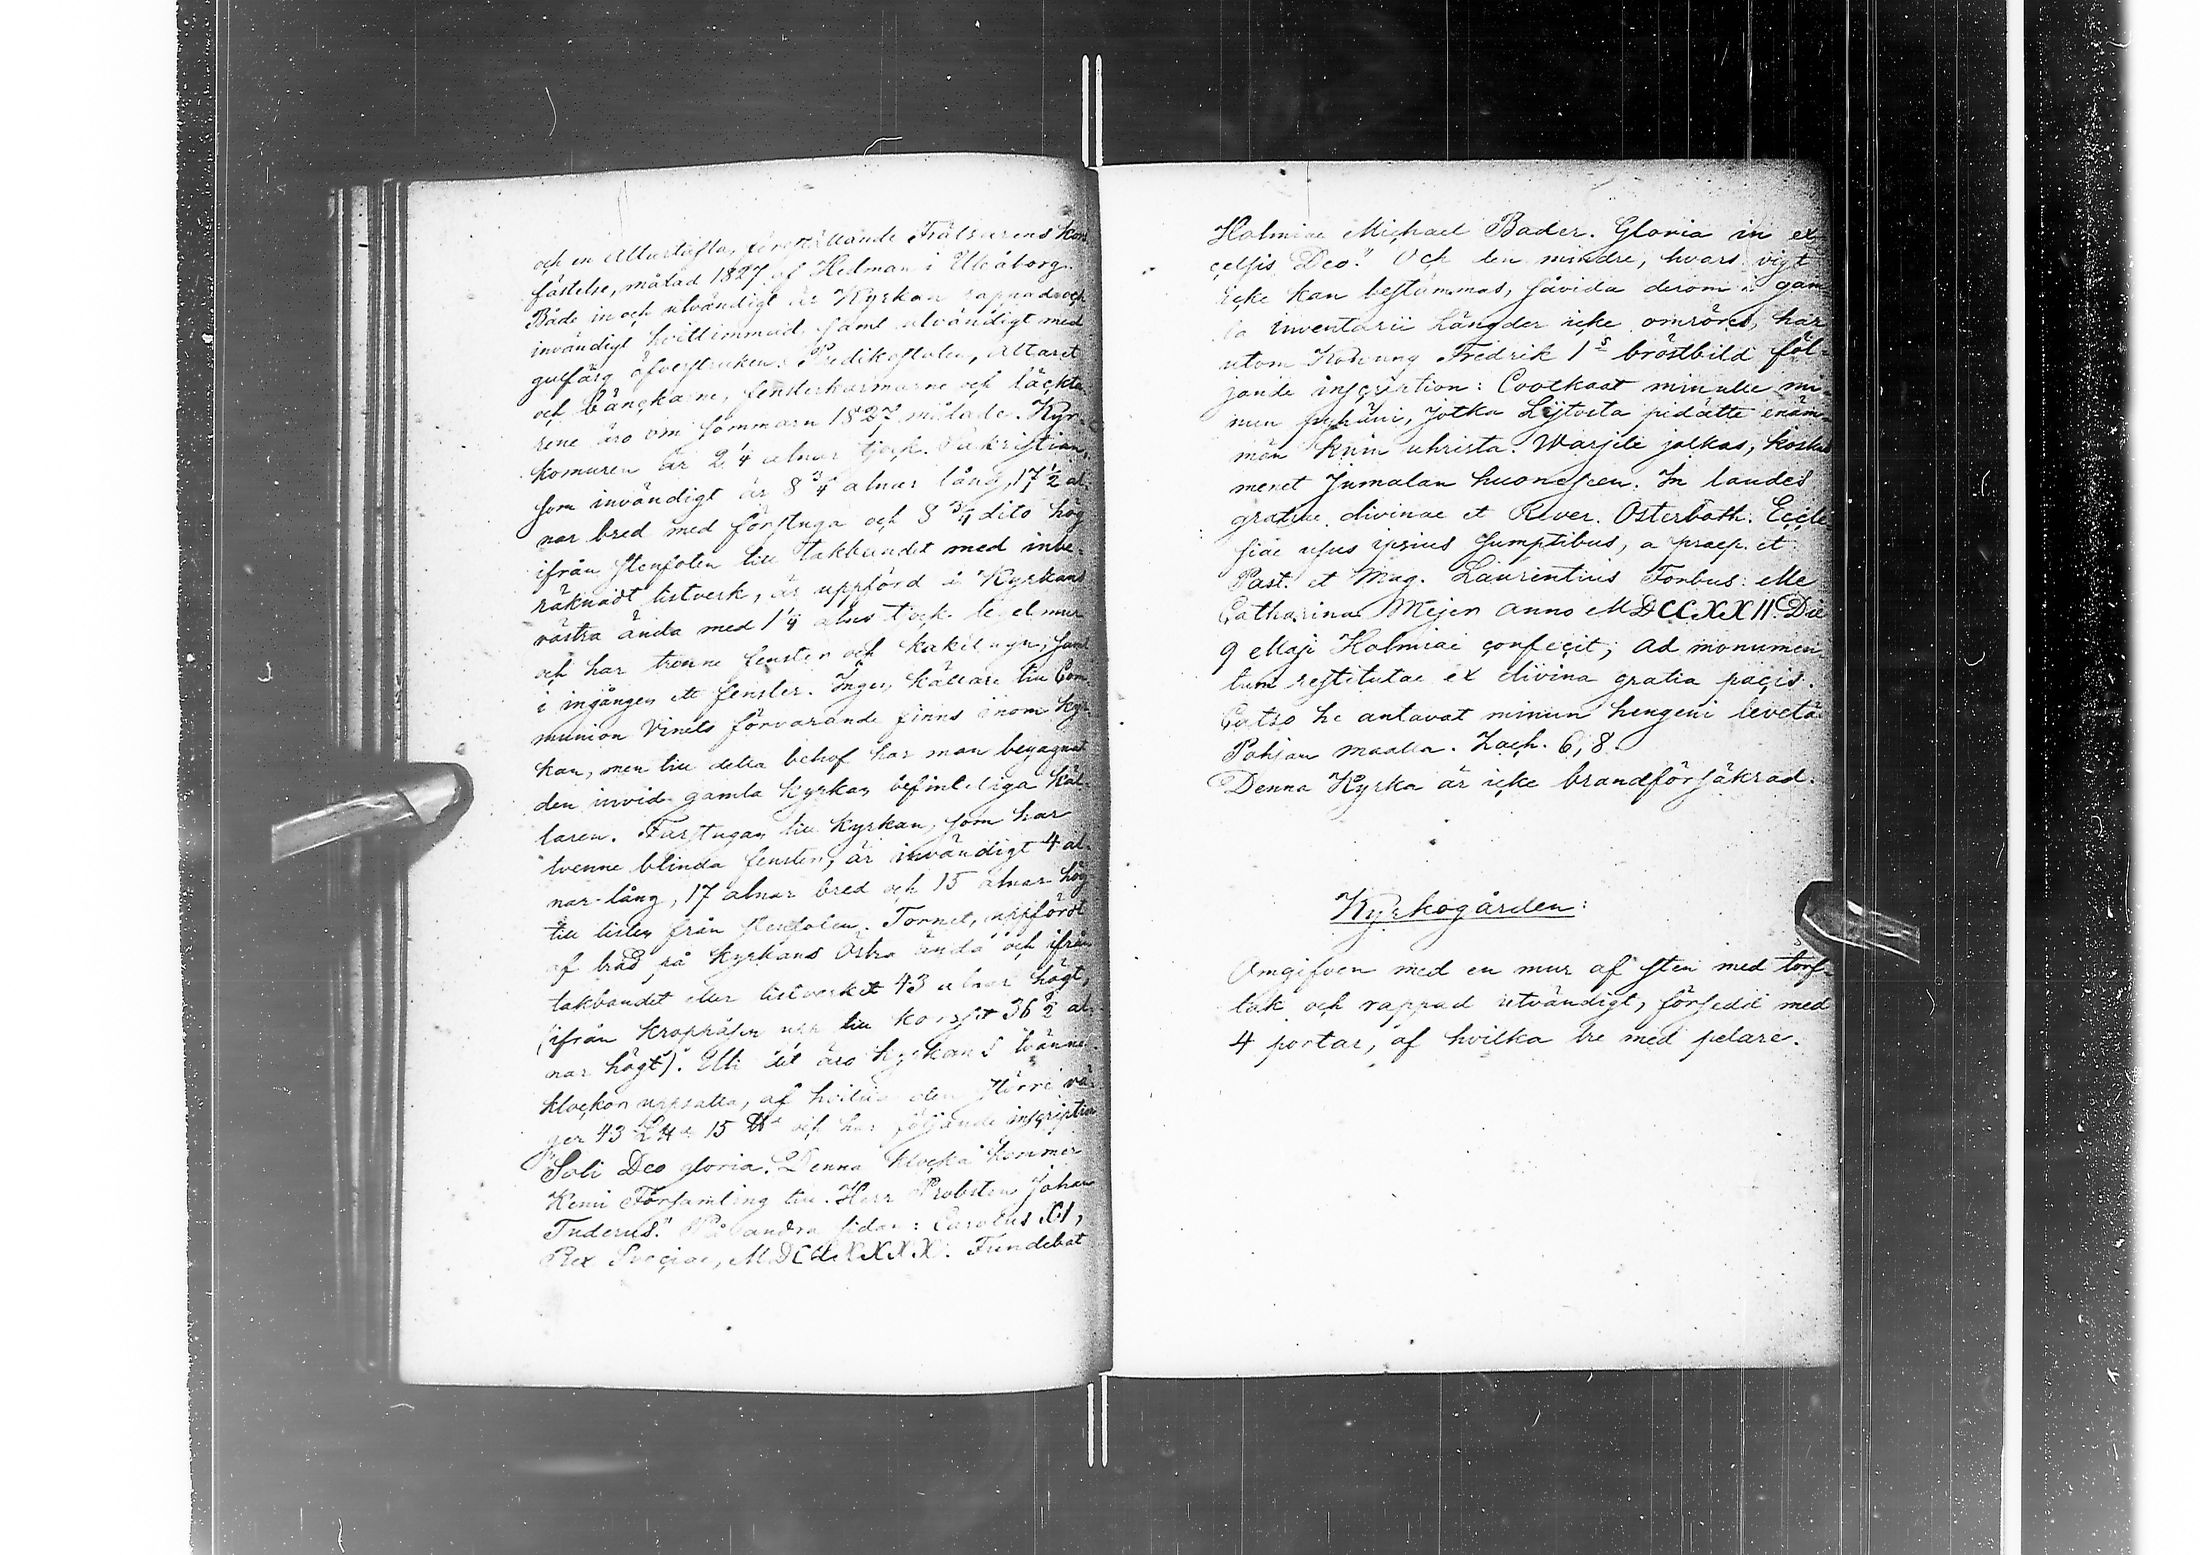 och en Altartafla, föreställande Frälsarens Kors-
fästelse, målad 1827 af Hedman i Uleåborg.
Både in och utvändigt är Kyrkan rappad och
invändigt hvitlimmad samt utvändigt med
gulfärg öfverstruken. Predikostolen, Altaret
och bänckarne, fensterkarmarne och läckta-
rene äro om sommarn 1827 målade. Kyr-
komuren är 2 1/4 alnar tjock. Sakristian,
som invändigt är 8 3/4 alnar lång, 17 1/2 al-
nar bred med förstuga och 8 3/4 dito hög
ifrån stenfoten till takbandet med inbe-
räknadt listverk, är uppförd i Kyrkans
västra ända med 1 1/4 alns tjock tegelmur
och har trenne fenster och kakelugn, samt
i ingången ett fenster. Ingen källare till Com-
munion Vinets förvarande finns inom kyr-
kan, men till detta behof har man begagnat
den invid gamla kyrkan befinteliga käl-
laren. Farstugan till Kyrkan, som har
tvenne blinda fenster, är invändigt 4 al-
nar lång, 17 alnar bred och 15 alnar hög
till listen från stenfoten. Tornet, uppfördt
af bräd på Kyrkans Östra ända och ifrån
takbandet eller listverket 43 alnar högt,
(ifrån kroppåsen upp till korset 36 1/2 al-
nar högt). Uti det äro kyrkans tvänne
klockor uppsatta, af hvilka den större vä-
ger 43 L℔ 15 ℔ och har följande inscription
"Soli Deo gloria. Denna klocka kommer
Kemi Församling till. Herr Probsten Johan
Tuderus." På andra sidan: Carolus XI,
Rex Sveciae, MDCLXXXX. Fundebat
Holmiae Michael Bader. Gloria in ex-
celsis Deo." Och den mindre, hvars vigt
icke kan bestämmas, såvida derom i gam-
la inventarii längder icke omröres, har
utom Konung Fredrik 1s bröstbild föl-
jande inscription: Coockaat minulle mi-
nun pyhäni, jotka Lijtosta pidätte enäm-
män kuin uhrista. Warjele jalkas, koskas
menet Jumalan huoneseen. In laudes
gratiae divinae et River. Osterboth. Eccle-
siae usus ipsius sumptibus, a praep. et
Past. et Mag. Laurentius Forbus. Me
Catharina Mejer anno MDCCXXII. Die
9 Maji Holmiae confecit; ad monumen-
tum restitutae ex divina gratia pacis.
Catso he antavat minun hengeni levetä
Pohjan maalla. Zach. 6, 8.
Denna Kyrka är icke brandförsäkrad.
Kyrkogården:
Omgifven med en mur af sten med torf-
tak och rappad utvändigt, försedd med
4 portar, af hvilka tre med pelare.